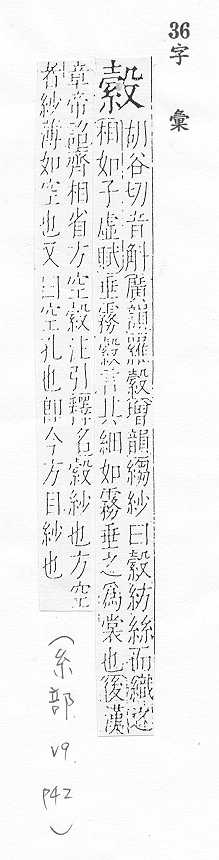 36
字彙
縠
胡谷切音斛廣韻羅縠增韻縐紗曰縠紡絲而織之
相如子虛賦垂霧縠言其細如霧垂之爲裳也後漢
章帝詔齊相省方空縠注引釋名縠紗也方空
者紗薄如空也又曰空孔也卽今方目紗也
(糸部 V9. P42)